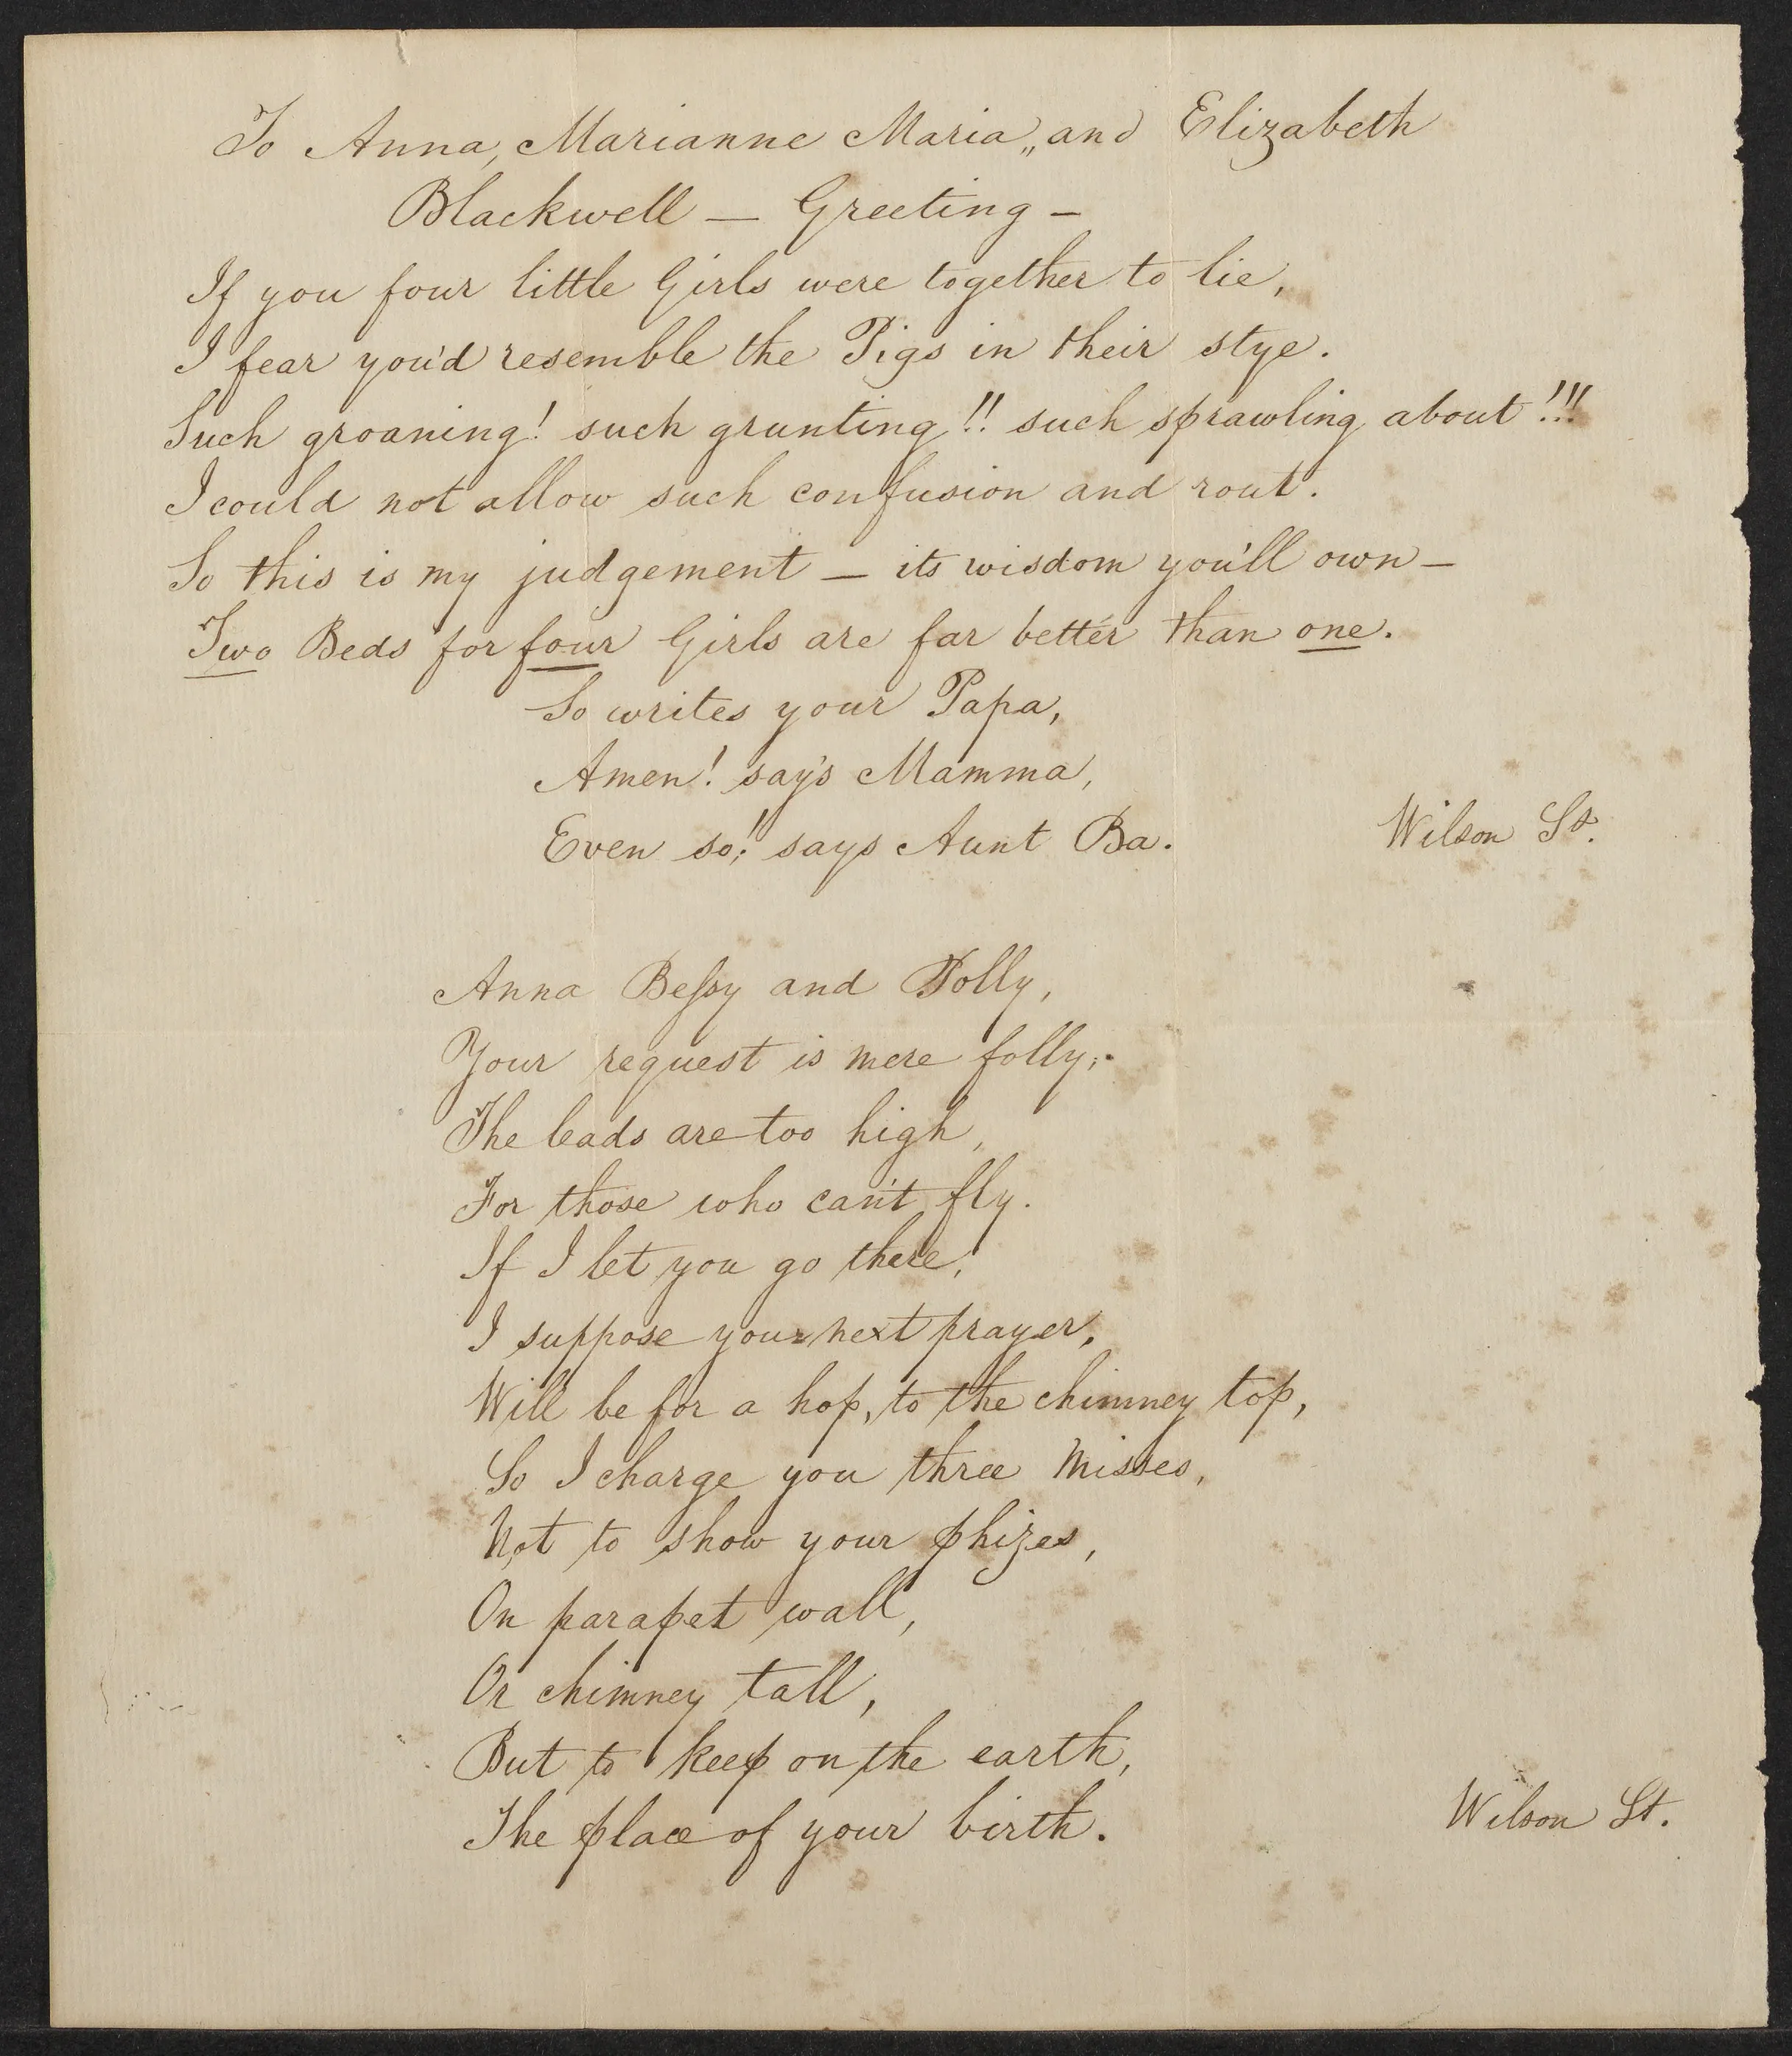 To Anna, Marianne Maria,, and Elizabeth
Blackwell — Greeting —
If you four little Girls were together to lie,
I fear you'd resemble the Pigs in their stye.
Such groaning! such grunting!! such sprawling about!!!
I could not allow such confusion and rout.
So this is my judgement — its wisdom you'll own —
Two Beds for four Girls are far better than one.
So writes your Papa,
Amen! say's Mamma,
Even so! says Aunt Ba.
Wilson St.
Anna Beſsy and Polly,
Your request is mere folly;
The leads are too high,
For those who can't fly.
If I let you go there,
I suppose your next prayer,
Will be for a hop, to the chimney top,
So I charge you three Misses,
Not to show your phizes,
On parapet wall,
Or chimney tall,
But to keep on the earth,
The place of your birth.
Wilson St.